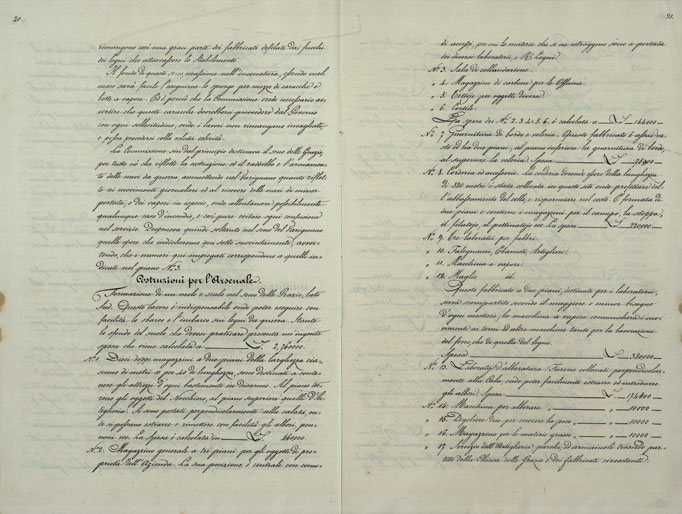 20.
rimangono così una gran parte dei fabbricati defilati dai fuochi
dei legni che attaccassero lo Stabilimento.
Il fondo di questo seno, massime sull'insenatura, essendo molto
facile l'eseguirne lo spurgo per mezzo di caracche e
botte a vapore. Ed è perciò che la Commissione crede necessario av-
vertire che queste caracche dovrebbersi provvedere dal Governo
con ogni sollecitudine, onde i lavori non rimangano incagliati
e possa procedersi colla voluta celerità.
La Commissione sin dal principio destinava il seno delle Grazie,
per tutto ciò che riflette la costruzione ed il raddobbo e l'armamen-
to delle navi da guerra, ammettendo nel Varignano quanto riflet-
te ai movimenti giornalieri ed al ricovero delle navi di minor
portata, e dei vapori in specie, onde allontanare possibilmente
qualunque caso d'incendio, e così pure evitare ogni confusione
nel servizio. Disponeva quindi soltanto nel seno del Varignano
quelle opere che indicheremo qui sotto succintamente, avver-
tendo, che i numeri qui impiegati corrispondono a quelli in-
dicati nel piano N.° 3.
Costruzioni per l'Arsenale.
Formazione di un molo e scalo nel seno delle Grazie, lato
Sud. Questo lavoro è indispensabile onde poter eseguire con
facilità lo sbarco e l'imbarco sui legni da guerra. Atteso
lo sfondo del suolo che dovrassi praticare presenta un'ingente
spesa che viene calcolata a £. 2,760000.
N.° 1. Dieci doppi magazzini a due piani della larghezza cia-
scuno di metri 10 per 40 di lunghezza, sono destinati a conte-
nere gli attrezzi d'ogni bastimento in disarmo. Al piano ter-
reno gli oggetti del Nocchiero, al piano superiore quelli d'Ar-
tiglieria. Si sono postati perpendicolarmente alla calata on-
de si possano estrarre e rimettere con facilità gli alberi, pen-
noni ecc. La Spesa è calcolata in £. 460000.
N.° 2. Magazzino generale a tre piani per gli oggetti di pro-
prietà dell'Azienda. La sua posizione è centrale con como-
21.
di accessi, per cui le materie che si ne estraggono sono a portata
dei diversi laboratori, e R.i Legni.
N.° 3. Sala di collaudazione.
" 4. Magazzini di carbone per le Officine.
" 5. Tettoje per oggetti diversi.
" 6. Cortili.
La spesa dei N.i 2. 3. 4. 5. 6. è calcolata a £. 144000
N.° 7. Guarnitura di bordo e veleria. Questo fabbricato è
a due piani, al piano inferiore la guarnitura di bordo,
al superiore la veleria. Spesa £. 76800
N.° 8. Corderia ed accessorie. La corderia dovendo essere della lunghezza
di 320 metri è stata collocata in questo sito onde profittare del-
l'abbassamento del colle, e risparmiare nel costo. È formata di
due piani e contiene i magazzini per il canape, la stoppa,
il filatojo, il pettinatojo ecc. La Spesa £. 720000
N.° 9. Tre laboratori per fabbri.
" 10. Falegnami, Ebanisti, Artiglieri.
" 11. Macchina a vapore.
" 12. Maglio id.
Questo fabbricato a due piani, destinato per i laboratori,
sarà scompartito secondo il maggiore o minore bisogno
d'ogni mestiere, la macchina a vapore comunicherà i mo-
vimenti ai torni ed altre macchine tanto per la lavorazione
del ferro, che di quella del legno.
Spesa £. 380000
N.° 13. Laboratojo d'alberatura. Furono collocati perpendicolar-
mente alla Cala, onde poter facilmente estrarre ed introdurre
gli alberi. Spesa £. 174800
N.° 14. Macchina per alberare " 10000
" 15. Pegoliere due per cuocere la pece " 10000
" 16. Magazzino per le materie grasse " 10000
" 17. Servizio dell'Artiglieria; parco
della Chiesa delle Grazie e dei fabbricati circostanti.